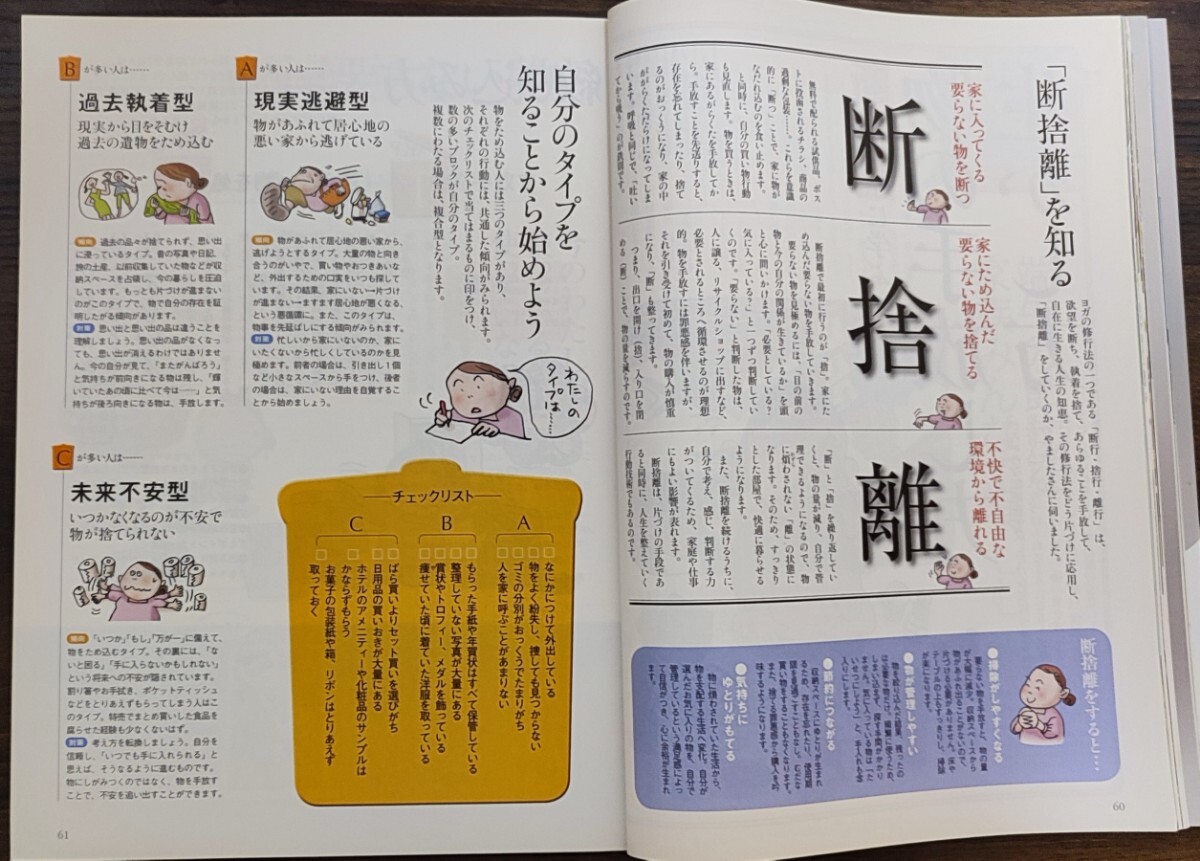 「断捨離」を知る
ヨガの修行法の一つである「断行・捨行・離行」は、
欲望を断ち、執着を捨て、あらゆることを手放して、
自在に生きる人生の知恵。その修行法をどう片づけに応用し、
「断捨離」をしていくのか、やましたさんに伺いました。
家に入ってくる
要らない物を断つ
断
無料で配られる試供品、ポス
トに投函されるチラシ、商品の
過剰な包装……。これらを意識
的に「断つ」ことで、家に物が
なだれ込むのを食い止めます。
と同時に、自分の買い物行動
も見直します。物を買うときは、
家にあるがらくたを手放してか
ら。手放すことを先送りすると、
存在を忘れてしまったり、捨て
るのがおっくうになり、家の中
ががらくただらけになってしま
います。呼吸と同じで、「吐い
てから吸う」のが鉄則です。
家にため込んだ
要らない物を捨てる
捨
断捨離で最初に行うのが「捨」。家にた
め込んだ要らない物を手放していきます。
要らない物を見極めるには、「目の前の
物と今の自分の関係が生きているか」を頭
と心に問いかけます。「必要としている?
気に入っている?」と一つずつ判断してい
くのです。「要らない」と判断した物は、
人に譲る、リサイクルショップに出すなど、
必要とされるところへ循環させるのが理想
的。物を手放すには罪悪感を伴いますが、
それを引き受けて初めて、物の購入が慎重
になり、「断」も整ってきます。
つまり、出口を開け(捨)、入り口を閉
める(断)ことで、物の量を減らすのです。
不快で不自由な
環境から離れる
離
「断」と「捨」を繰り返してい
くと、物の量が減り、自分で管
理できるようになるので、物
に煩わされない「離」の状態に
なります。そのため、すっきり
とした部屋で、快適に暮らせる
ようになります。
また、断捨離を続けるうちに、
自分で考え、感じ、判断する力
がついてくるため、家庭や仕事
にもよい影響が表れます。
断捨離は、片づけの手段であ
ると同時に、人生を整えていく
行動技術でもあるのです。
断捨離をすると…
●掃除がしやすくなる
要らない物を手放すと、物の量
が大幅に減少。収納スペースから
物があふれ出ることがないので、
片づける必要がありません。床や
テーブルの上もすっきりし、掃除
が楽になります。
●物が管理しやすい
物を絞り込んだ結果、残ったの
は必要な物だけ。頻繁に使うため、
しまい込まず、探す手間がかかり
ません。気に入っている物は「た
いせつに使おう」と、手入れも念
入りにします。
●節約につながる
収納スペースにゆとりが生まれ
るため、存在を忘れたり、使用期
限を見過ごすこともなし。むだな
買い物をすることもなくなります。
また、捨てる罪悪感から購入を吟
味するようになります。
●気持ちに
ゆとりがもてる
物に使われていた生活から、
物を支配する生活へ変化。自分が
選んだお気に入りの物を、自分で
管理しているという満足感によっ
て自信がつき、心に余裕が生まれ
ます。
60
自分のタイプを
知ることから始めよう
物をため込む人には三つのタイプがあり、
それぞれの行動には、共通した傾向がみられます。
次のチェックリストで当てはまるものに印をつけ、
数の多いブロックが自分のタイプ。
複数にわたる場合は、複合型となります。
わたしの
タイプは……
A が多い人は……
現実逃避型
物があふれて居心地の
悪い家から逃げている
傾向 物があふれて居心地の悪い家から、
逃げようとするタイプ。大量の物と向き
合うのがいやで、買い物やおつきあいな
ど、外出するための口実をいつも探して
います。その結果、家にいない→片づけ
が進まない→ますます居心地が悪くなる、
という悪循環に。また、このタイプは、
物事を先延ばしにする傾向がみられます。
対策 忙しいから家にいないのか、家に
いたくないから忙しくしているのかを見
極めます。前者の場合は、引き出し1個
など小さなスペースから手をつけ、後者
の場合は、家にいない理由を自覚するこ
とから始めましょう。
B が多い人は……
過去執着型
現実から目をそむけ
過去の遺物をため込む
傾向 過去の品々が捨てられず、思い出
に浸っているタイプ。昔の写真や日記、
旅の土産、以前収集していた物などが収
納スペースを占領し、今の暮らしを圧迫
しています。もっとも片づけが進まない
のがこのタイプで、物で自分の存在を証
明したがる傾向があります。
対策 思い出と思い出の品は違うことを
理解しましょう。思い出の品がなくなっ
ても、思い出が消えるわけではありませ
ん。今の自分が見て、「またがんばろう」
と気持ちが前向きになる物は残し、「輝
いていたあの頃に比べて今は——」と気
持ちが後ろ向きになる物は、手放します。
C が多い人は……
未来不安型
いつかなくなるのが不安で
物が捨てられない
傾向 「いつか」「もし」「万が一」に備えて、
物をため込むタイプ。その裏には、「な
いと困る」「手に入らないかもしれない」
という将来への不安が隠されています。
割り箸やお手拭き、ポケットティッシュ
などをとりあえずもらってしまう人はこ
のタイプ。特売でまとめ買いした食品を
腐らせた経験も少なくないはず。
対策 考え方を転換しましょう。自分を
信頼し、「いつでも手に入れられる」と
思えば、そうなるように進むものです。
物にしがみつくのではなく、物を手放す
ことで、不安を追い出すことができます。
チェックリスト
A
□なにかにつけて外出している
□物をよく紛失し、捜しても見つからない
□ゴミの分別がおっくうでたまりがち
□人を家に呼ぶことがあまりない
B
□もらった手紙や年賀状はすべて保管している
□整理していない写真が大量にある
□賞状やトロフィー、メダルを飾っている
□痩せていた頃に着ていた洋服を取っている
C
□ばら買いよりセット買いを選びがち
□日用品の買いおきが大量にある
□ホテルのアメニティーや化粧品のサンプルは
かならずもらう
□お菓子の包装紙や箱、リボンはとりあえず
取っておく
61